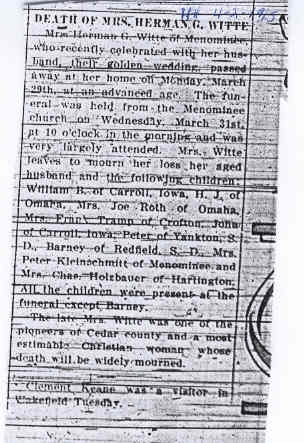 DEATH OF MRS. HERMAN G. WITTE
Mrs. Herman G. Witte of Menominee,
who recently celebrated with her hus-
band, their golden wedding, passed
away at her home on Monday, March
29th, at an advanced age. The fun-
eral was held from the Menominee
church on Wednesday, March 31st,
at 10 o'clock in the morning and was
very largely attended. Mrs. Witte
leaves to mourn her loss her aged
husband and the following children:
William B. of Carroll, Iowa, H. J. of
Omaha, Mrs. Joe Roth of Omaha,
Mrs. Frank Tramp of Crofton, John
of Carroll, Iowa, Peter of Yankton, S.
D., Barney of Redfield, S. D., Mrs.
Peter Kleinschmitt of Menominee and
Mrs. Chas. Holzbauer of Hartington.
All the children were present at the
funeral except Barney.
The late Mrs. Witte was one of the
pioneers of Cedar county and a most
estimable Christian woman whose
death will be widely mourned.
Clement Keane was a visitor in
Wakefield Tuesday.